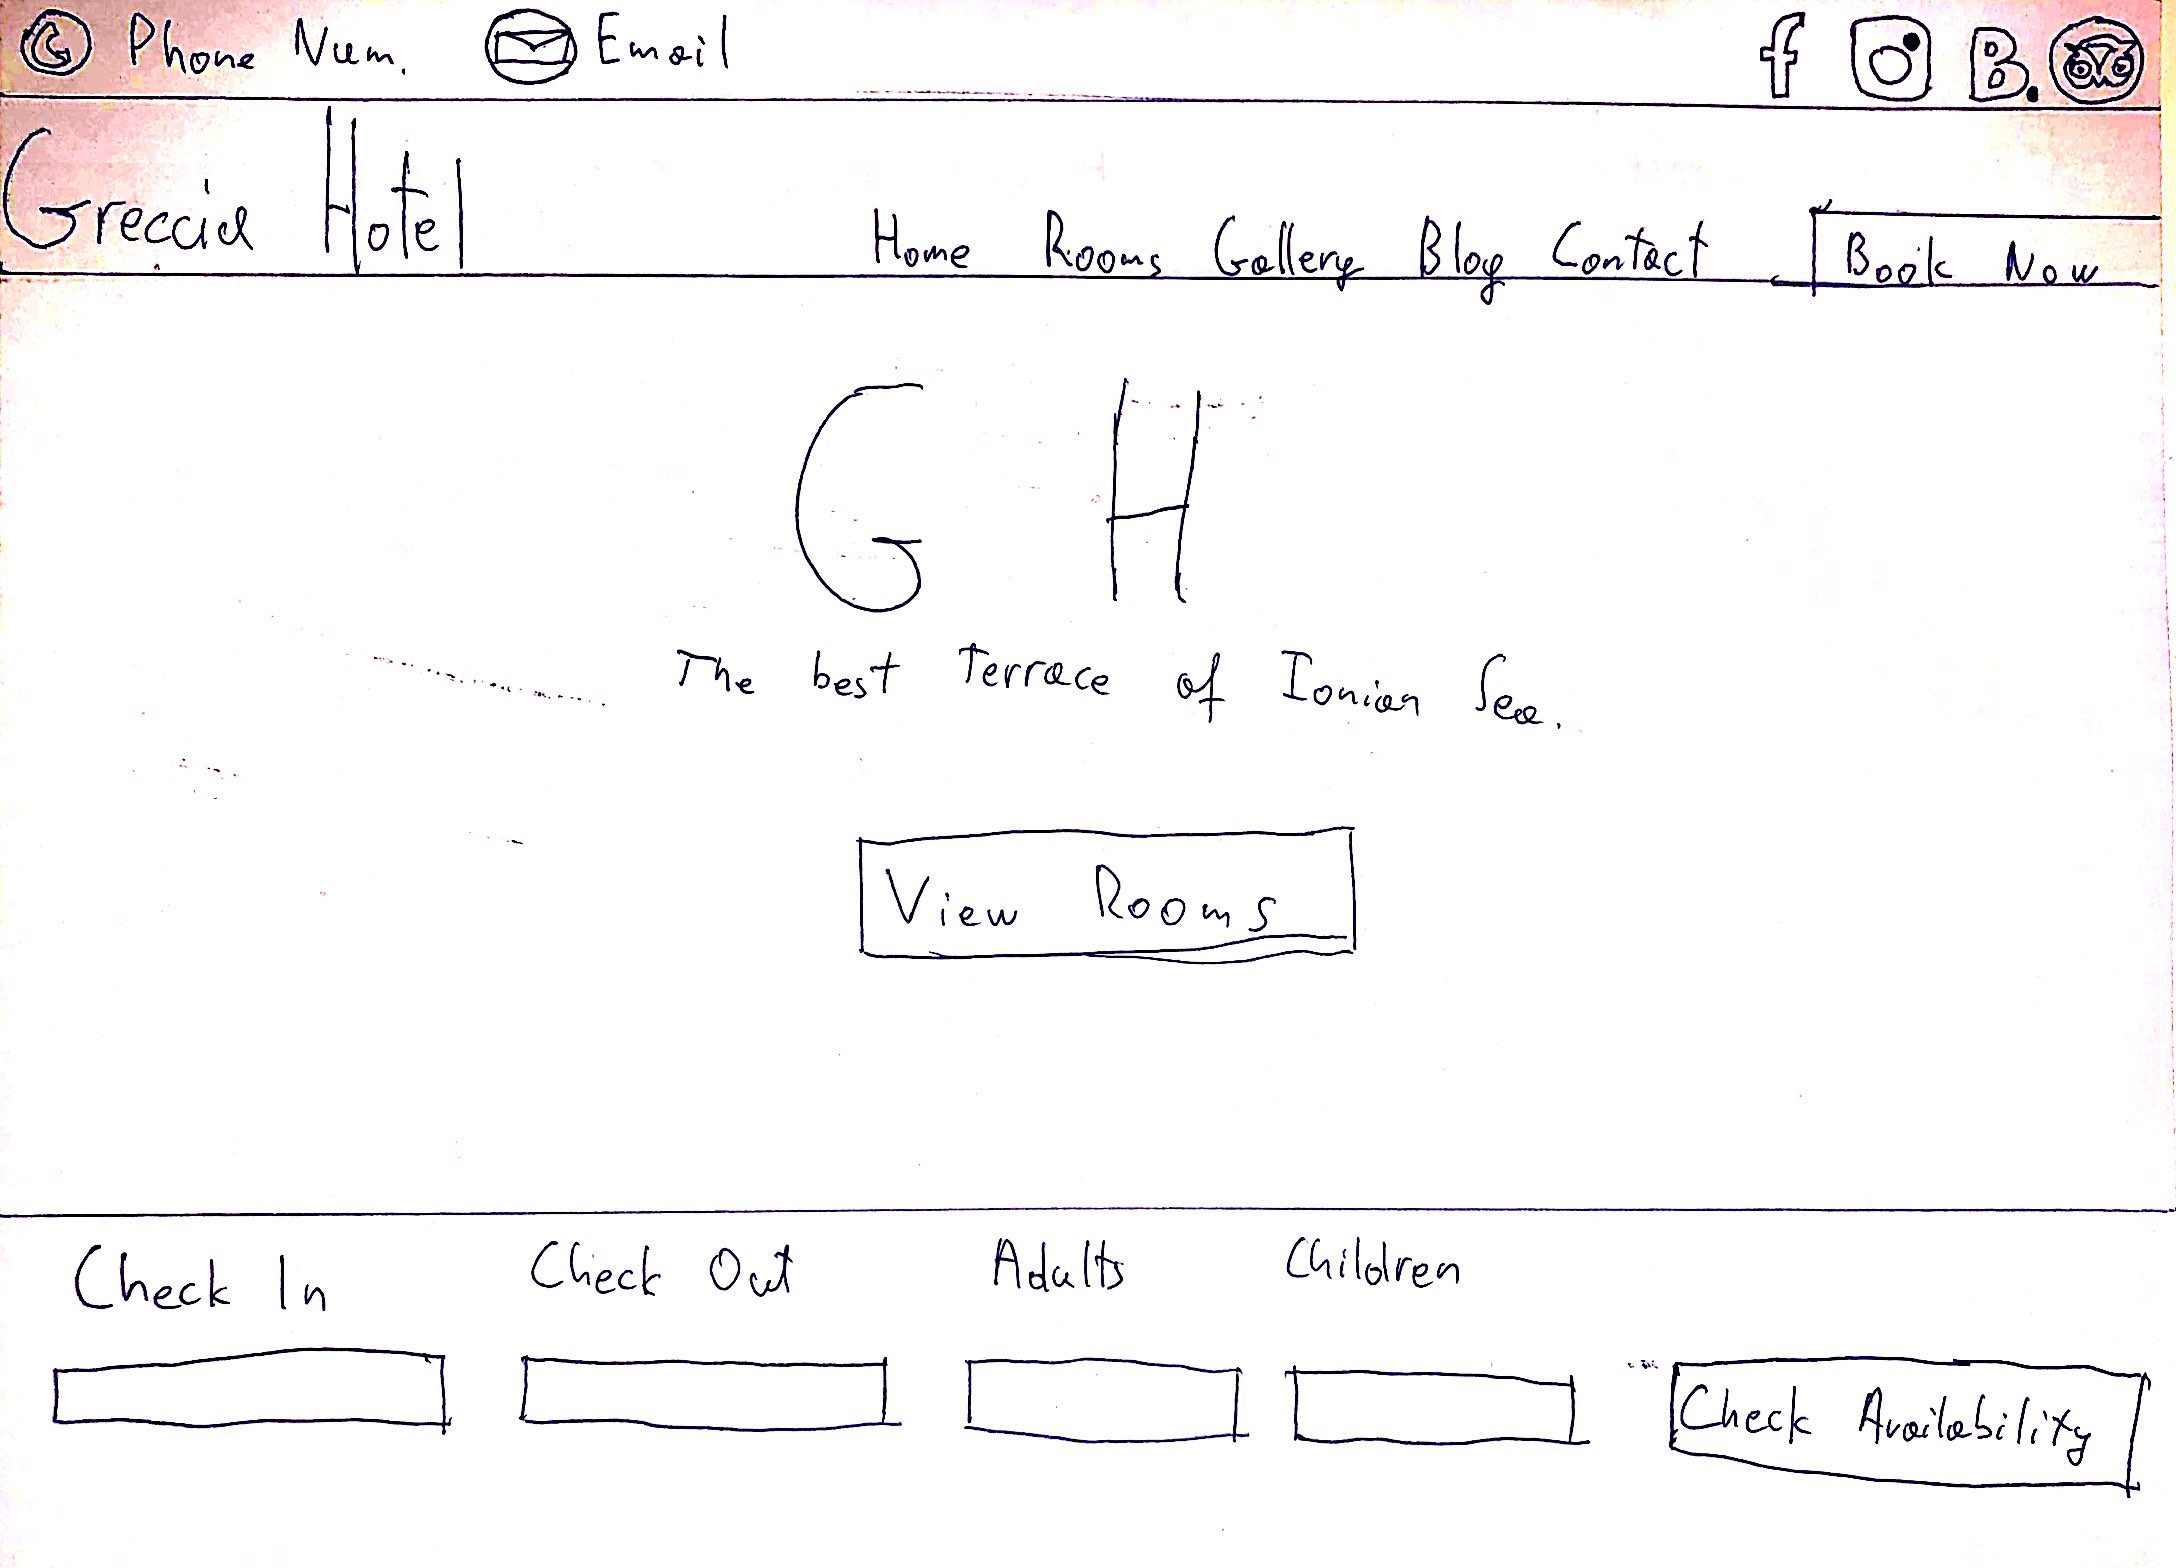 Phone Num. Email f B.
Greccia Hotel
Home Rooms Gallery Blog Contact Book Now
G H
The best Terrace of Ionian Sea.
View Rooms
Check In Check Out Adults Children
Check Availability